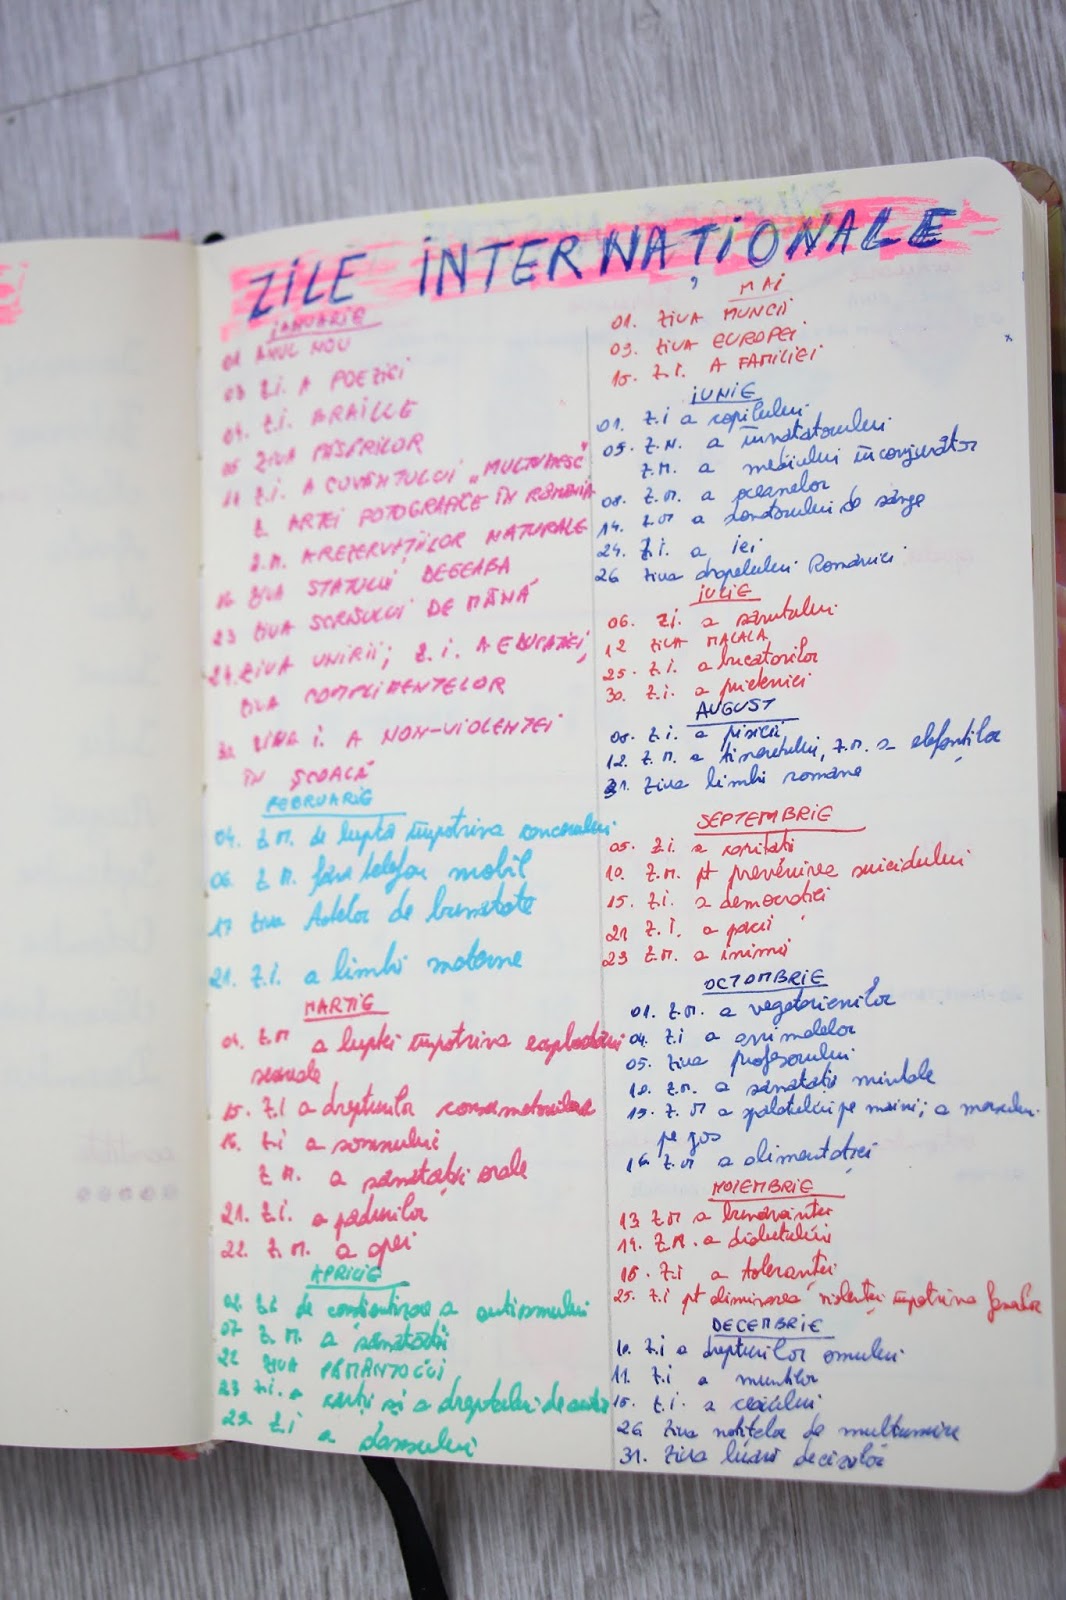 ZILE INTERNAȚIONALE
IANUARIE
01 ANUL NOU
03 Z.I. A POEZIEI
04. Z.I. BRAILLE
05 ZIUA PĂSĂRILOR
11 Z.I. A CUVÂNTULUI „MULȚUMESC"
Z. ARTEI FOTOGRAFICE ÎN ROMÂNIA
Z.M. A REZERVAȚIILOR NATURALE
16 ZIUA STATULUI DEGEABA
23 ZIUA SCRISULUI DE MÂNĂ
24. ZIUA UNIRII; Z.I. A EDUCAȚIEI,
ZIUA COMPLIMENTELOR
30 ZIUA I. A NON-VIOLENȚEI
ÎN ȘCOALĂ
FEBRUARIE
04. Z.M. de luptă împotriva cancerului
06. Z.M. fără telefon mobil
17 Ziua faptelor de bunătate
21. Z.I. a limbii materne
MARTIE
04. Z.M a luptei împotriva exploatării
sexuale
15. Z.I a drepturilor consumatorilor
16. Z.i a somnului
Z.M. a sănătății orale
21. Z.I. a pădurilor
22. Z.M. a apei
APRILIE
02. Z.I de conștientizare a autismului
07 Z.M. a sănătății
22 ZIUA PĂMÂNTULUI
23 Z.I. a cărții și a dreptului de autor
29. Z.I a dansului
MAI
01. ZIUA MUNCII
09. ZIUA EUROPEI
15. Z.I. A FAMILIEI
IUNIE
01. Z.I a copilului
05. Z.N. a învățătorului
Z.M. a mediului înconjurător
08. Z.M. a oceanelor
14. Z.M a donatorului de sânge
24. Z.I. a iei
26 Ziua drapelului României
IULIE
06. Z.I. a sărutului
12 ZIUA MALALA
25. Z.I. a bucătarilor
30. Z.I. a prieteniei
AUGUST
08. Z.I. a pisicii
12. Z.M. a tineretului, Z.M. a elefanților
31. Ziua limbii române
SEPTEMBRIE
05. Z.I. a carității
10. Z.M. pt prevenirea suicidului
15. Z.I. a democrației
21 Z.I. a păcii
23 Z.M. a inimii
OCTOMBRIE
01. Z.M. a vegetarienilor
04. Z.I a animalelor
05. Ziua profesorului
10. Z.M. a sănătății mintale
15. Z.M a spălatului pe mâini; a mersului
pe jos
16 Z.M a alimentației
NOIEMBRIE
13 Z.M a bunăvoinței
14. Z.M. a diabetului
16. Z.I a toleranței
25. Z.I pt eliminarea violenței împotriva femeilor
DECEMBRIE
10. Z.I a drepturilor omului
11. Z.I a munților
15. Z.I. a ceaiului
26 Ziua notițelor de mulțumire
31. Ziua luării deciziilor